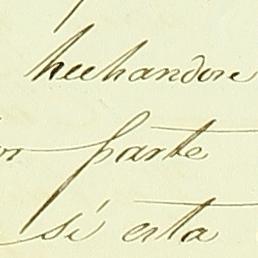 hechandose
parte
si esta